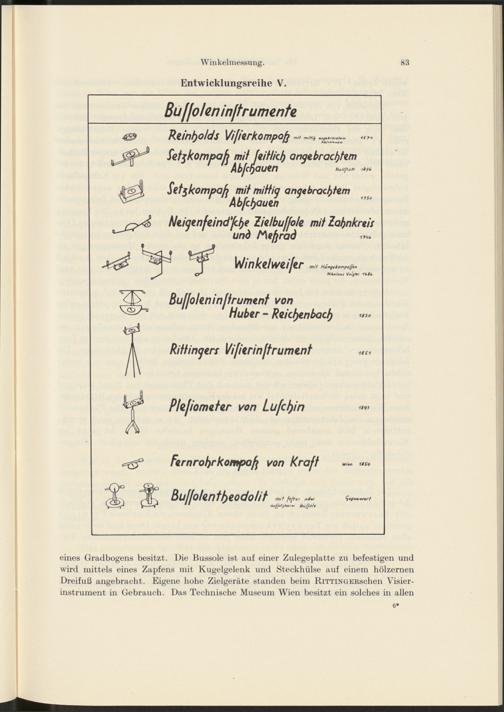 Winkelmessung. 83
Entwicklungsreihe V.
Buſſoleninſtrumente
Reinholds Viſierkompaß mit mittig angebrachtem 1574
Setzkompaß mit ſeitlich angebrachtem
Abſchauen
Setzkompaß mit mittig angebrachtem
Abſchauen 1750
Neigenfeind'ſche Zielbuſſole mit Zahnkreis
und Meßrad
Winkelweiſer mit Hängekompaſſen
Nikolaus Voigtel 1686
Buſſoleninſtrument von
Huber - Reichenbach
Rittingers Viſierinſtrument
Pleſiometer von Luſchin
Fernrohrkompaß von Kraft Wien
Buſſolentheodolit mit feſter oder Gegenwart
aufſetzbarer Buſſole
eines Gradbogens besitzt. Die Bussole ist auf einer Zulegeplatte zu befestigen und
wird mittels eines Zapfens mit Kugelgelenk und Steckhülse auf einem hölzernen
Dreifuß angebracht. Eigene hohe Zielgeräte standen beim RITTINGERschen Visier-
instrument in Gebrauch. Das Technische Museum Wien besitzt ein solches in allen
6*